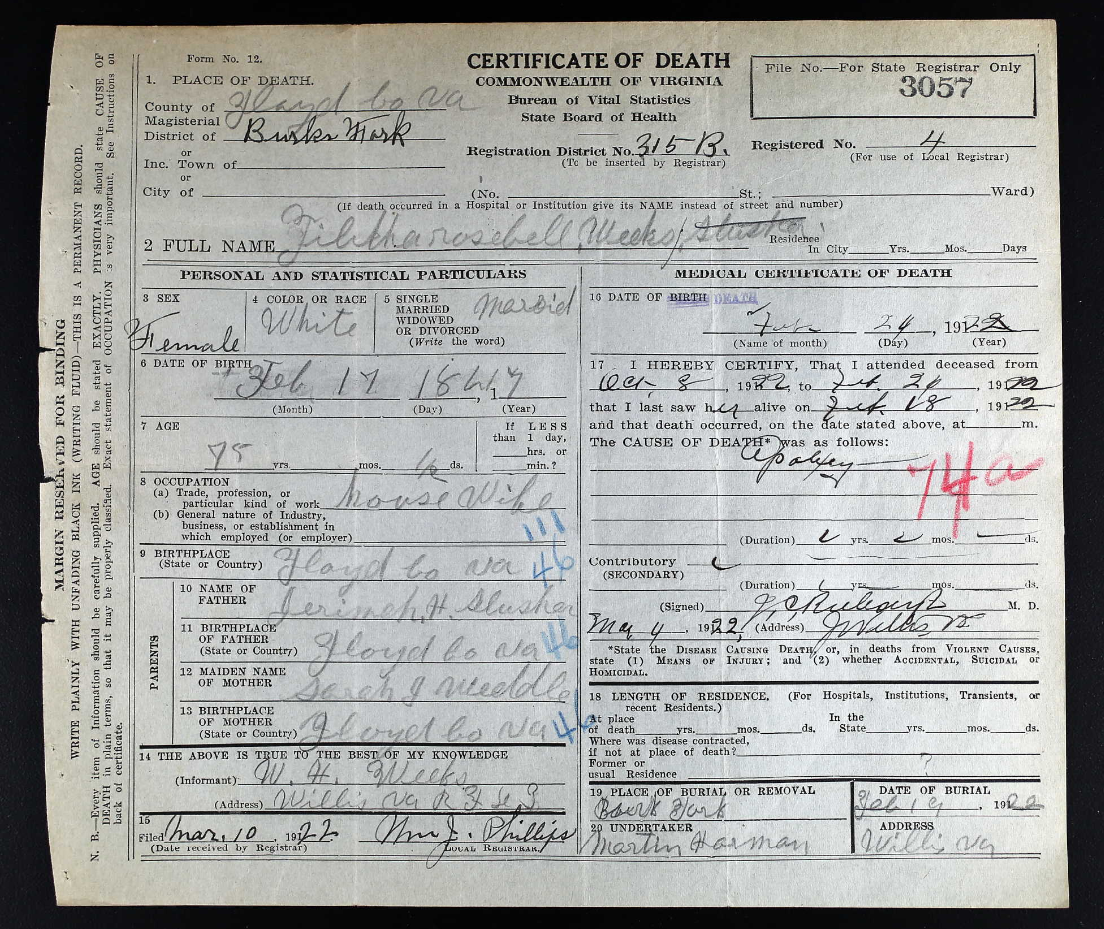 Form No. 12.
CERTIFICATE OF DEATH
COMMONWEALTH OF VIRGINIA
Bureau of Vital Statistics
State Board of Health
File No.—For State Registrar Only
3057
1. PLACE OF DEATH.
County of Floyd Co Va
Magisterial
District of Burks Fork
or
Inc. Town of
or
City of
Registration District No. 315-B.
(To be inserted by Registrar)
Registered No. 4
(For use of Local Registrar)
(No. St.; Ward)
(If death occurred in a Hospital or Institution give its NAME instead of street and number)
2 FULL NAME rosebell Weeks, Slusher
Residence
In City Yrs. Mos. Days
PERSONAL AND STATISTICAL PARTICULARS
3 SEX
Female
4 COLOR OR RACE
White
5 SINGLE
MARRIED
WIDOWED
OR DIVORCED
(Write the word)
Maroid
6 DATE OF BIRTH
Feb 17 1847, 1
(Month) (Day) (Year)
7 AGE
75 yrs. mos. ds.
If LESS
than 1 day,
hrs. or
min.?
8 OCCUPATION
(a) Trade, profession, or
particular kind of work House Wife
(b) General nature of Industry,
business, or establishment in
which employed (or employer)
111
9 BIRTHPLACE
(State or Country) Floyd Co Va 46
PARENTS
10 NAME OF
FATHER Jerimah H. Slusher
11 BIRTHPLACE
OF FATHER
(State or Country) Floyd Co Va 46
12 MAIDEN NAME
OF MOTHER Sarah J Weddle
13 BIRTHPLACE
OF MOTHER
(State or Country) Floyd Co Va 46
14 THE ABOVE IS TRUE TO THE BEST OF MY KNOWLEDGE
(Informant) W. H. Weeks
(Address) Willis Va R F D
15
Filed Mar. 10, 1922 Wm J. Phillips
(Date received by Registrar) LOCAL REGISTRAR.
MEDICAL CERTIFICATE OF DEATH
16 DATE OF BIRTH DEATH
Feb 24, 1922
(Name of month) (Day) (Year)
17 I HEREBY CERTIFY, That I attended deceased from
Oct 8, 1922, to Feb. 24, 1922
that I last saw her alive on Feb. 18, 1922
and that death occurred, on the date stated above, at m.
The CAUSE OF DEATH* was as follows:
Apolexy
74a
(Duration) yrs. mos. ds.
Contributory
(SECONDARY)
(Duration) yrs. mos. ds.
(Signed) M. D.
Mar 4, 1922, (Address) Willis Va
*State the DISEASE CAUSING DEATH, or, in deaths from VIOLENT CAUSES,
state (1) MEANS OF INJURY; and (2) whether ACCIDENTAL, SUICIDAL OR
HOMICIDAL.
18 LENGTH OF RESIDENCE. (For Hospitals, Institutions, Transients, or
recent Residents.)
At place In the
of death yrs. mos. ds. State yrs. mos. ds.
Where was disease contracted,
if not at place of death?
Former or
usual Residence ?
19 PLACE OF BURIAL OR REMOVAL
Burk Fork
DATE OF BURIAL
Feb 19, 1922
20 UNDERTAKER
Martin Harman
ADDRESS
Willis Va
MARGIN RESERVED FOR BINDING
WRITE PLAINLY WITH UNFADING BLACK INK (WRITING FLUID)—THIS IS A PERMANENT RECORD.
N. B.—Every item of Information should be carefully supplied. AGE should be stated EXACTLY. PHYSICIANS should state CAUSE OF
DEATH in plain terms, so that it may be properly classified. Exact statement of OCCUPATION is very important. See Instructions on
back of certificate.